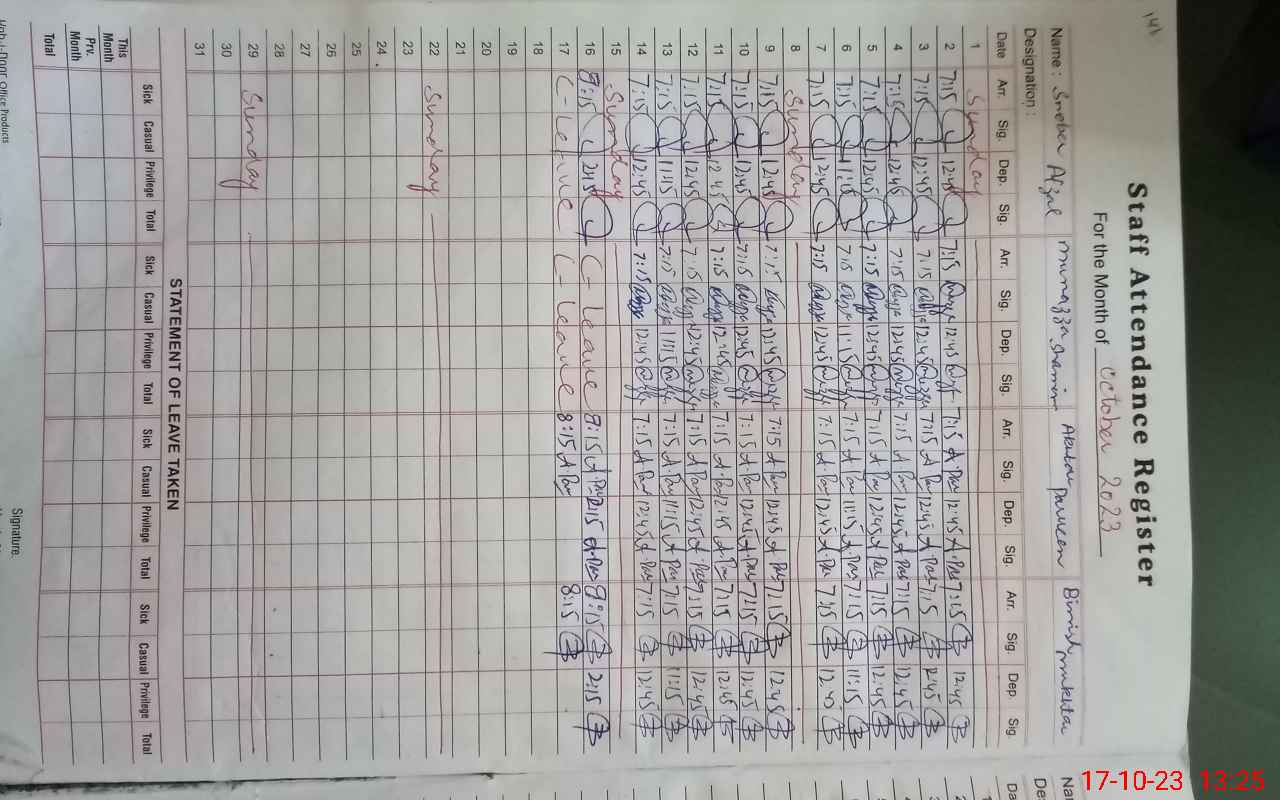 141
Staff Attendance Register
For the Month of October 2023
Name : Snober Afzal Munazza Shamim Akhtar Parveen Binish Mukhtar
Designation :
Date Arr. Sig. Dep. Sig. Arr. Sig. Dep. Sig. Arr. Sig. Dep. Sig. Arr. Sig. Dep. Sig.
1 Sunday
2 7:15 12:45 7:15 12:45 7:15 A.Par 12:45 A.Par 7:15 B 12:45 B
3 7:15 12:45 7:15 12:45 7:15 A.Par 12:45 A.Par 7:15 B 12:45 B
4 7:15 12:45 7:15 12:45 7:15 A.Par 12:45 A.Par 7:15 B 12:45 B
5 7:15 12:45 7:15 12:45 7:15 A.Par 12:45 A.Par 7:15 B 12:45 B
6 7:15 11:15 7:15 11:15 7:15 A.Par 11:15 A.Par 7:15 B 11:15 B
7 7:15 12:45 7:15 12:45 7:15 A.Par 12:45 A.Par 7:15 B 12:45 B
8 Sunday
9 7:15 12:45 7:15 12:45 7:15 A.Par 12:45 A.Par 7:15 B 12:45 B
10 7:15 12:45 7:15 12:45 7:15 A.Par 12:45 A.Par 7:15 B 12:45 B
11 7:15 12:45 7:15 12:45 7:15 A.Par 12:45 A.Par 7:15 B 12:45 B
12 7:15 12:45 7:15 12:45 7:15 A.Par 12:45 A.Par 7:15 B 12:45 B
13 7:15 11:15 7:15 11:15 7:15 A.Par 11:15 A.Par 7:15 B 11:15 B
14 7:15 12:45 7:15 12:45 7:15 A.Par 12:45 A.Par 7:15 B 12:45 B
15 Sunday
16 8:15 2:15 C-leave 8:15 A.Par 2:15 A.Par 8:15 B 2:15 B
17 C-leave C-leave 8:15 A.Par 8:15 B
18
19
20
21
22 Sunday
23
24
25
26
27
28
29 Sunday
30
31
STATEMENT OF LEAVE TAKEN
Sick Casual Privilege Total Sick Casual Privilege Total Sick Casual Privilege Total Sick Casual Privilege Total
This Month
Prv. Month
Total
Signature.
Office Products
Na
De
Da
1
2
17-10-23 13:25